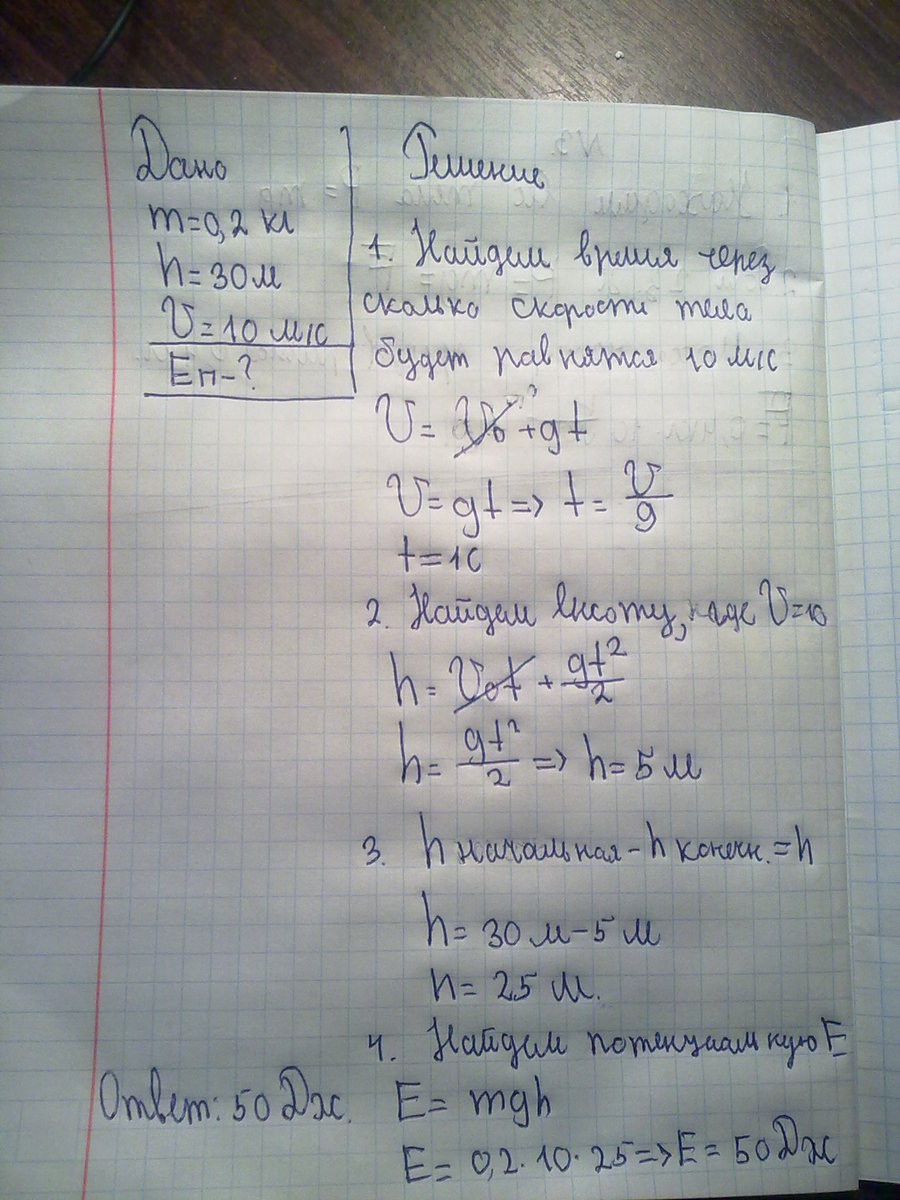 Дано
m=0,2 кг
h=30м
V=10 м/с
Eп-?
Решение
1. Найдем время через
сколько скорости тела
будет равнятся 10 м/с
V= V₀ +gt
V= gt => t = V/g
t=1с
2. Найдем высоту, где V=10
h= V₀t + gt²/2
h= gt²/2 => h= 5 м
3. h начальная - h конечн. = h
h= 30 м - 5 м
h= 25 м.
4. Найдем потенциальную E
E= mgh
E= 0,2·10·25 => E= 50 Дж
Ответ: 50 Дж.